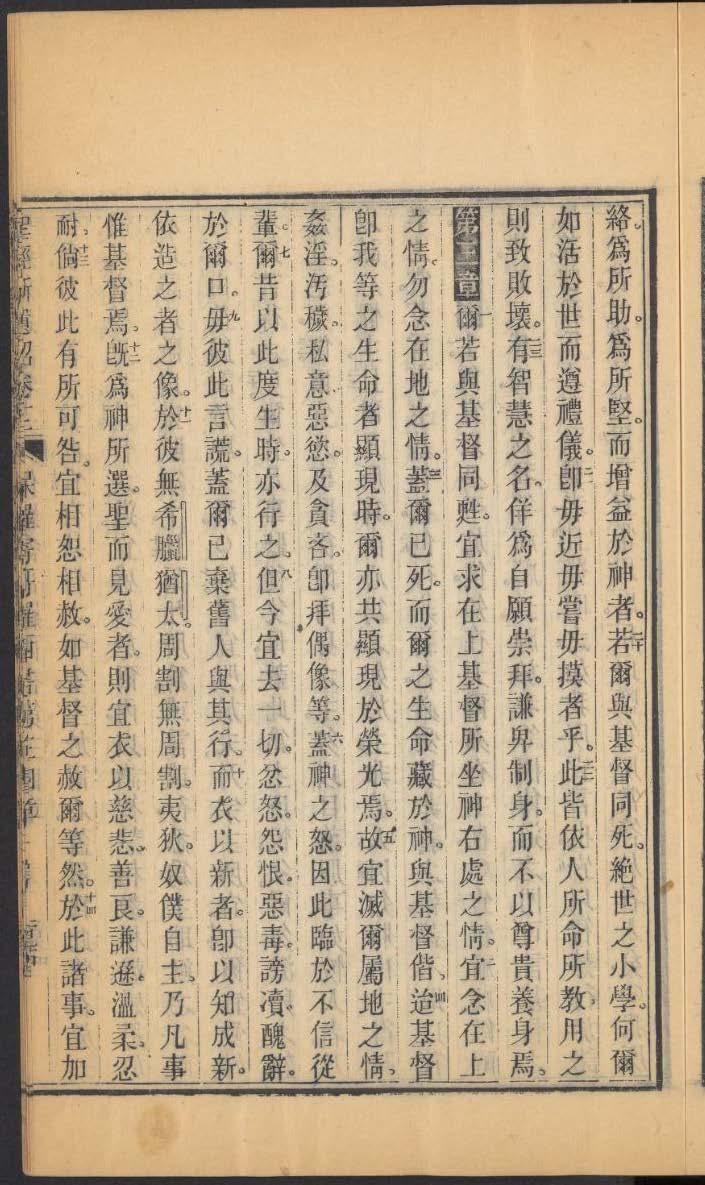 絡。爲所助。爲所堅。而增益於神者。二十若爾與基督同死。絕世之小學。何爾
如活於世而遵禮儀。二一卽毋近毋嘗毋摸者乎。二二此皆依人所命所教、用之
則致敗壞。二三有智慧之名。佯爲自願崇拜。謙卑制身。而不以尊貴養身焉。
第三章 一爾若與基督同甦。宜求在上基督所坐神右處之情。二宜念在上
之情。勿念在地之情。三蓋爾已死。而爾之生命藏於神。與基督偕、四迨基督
卽我等之生命者顯現時。爾亦共顯現於榮光焉。五故宜滅爾屬地之情、
姦淫。汚穢。私意惡慾。及貪吝。卽拜偶像等。六蓋神之怒。因此臨於不信從
輩。七爾昔以此度生時。亦行之。八但今宜去一切。忿怒。怨恨。惡毒。謗凟。醜辭。
於爾口。九毋彼此言謊。蓋爾已棄舊人與其行。十而衣以新者。卽以知成新。
依造之者之像。十一於彼無希臘猶太。周割無周割。夷狄。奴僕自主。乃凡事
惟基督焉。十二旣爲神所選。聖而見愛者。則宜衣以慈悲。善良。謙遜。溫柔。忍
耐、十三倘彼此有所可咎。宜相恕相赦。如基督之赦爾等然。十四於此諸事。宜加